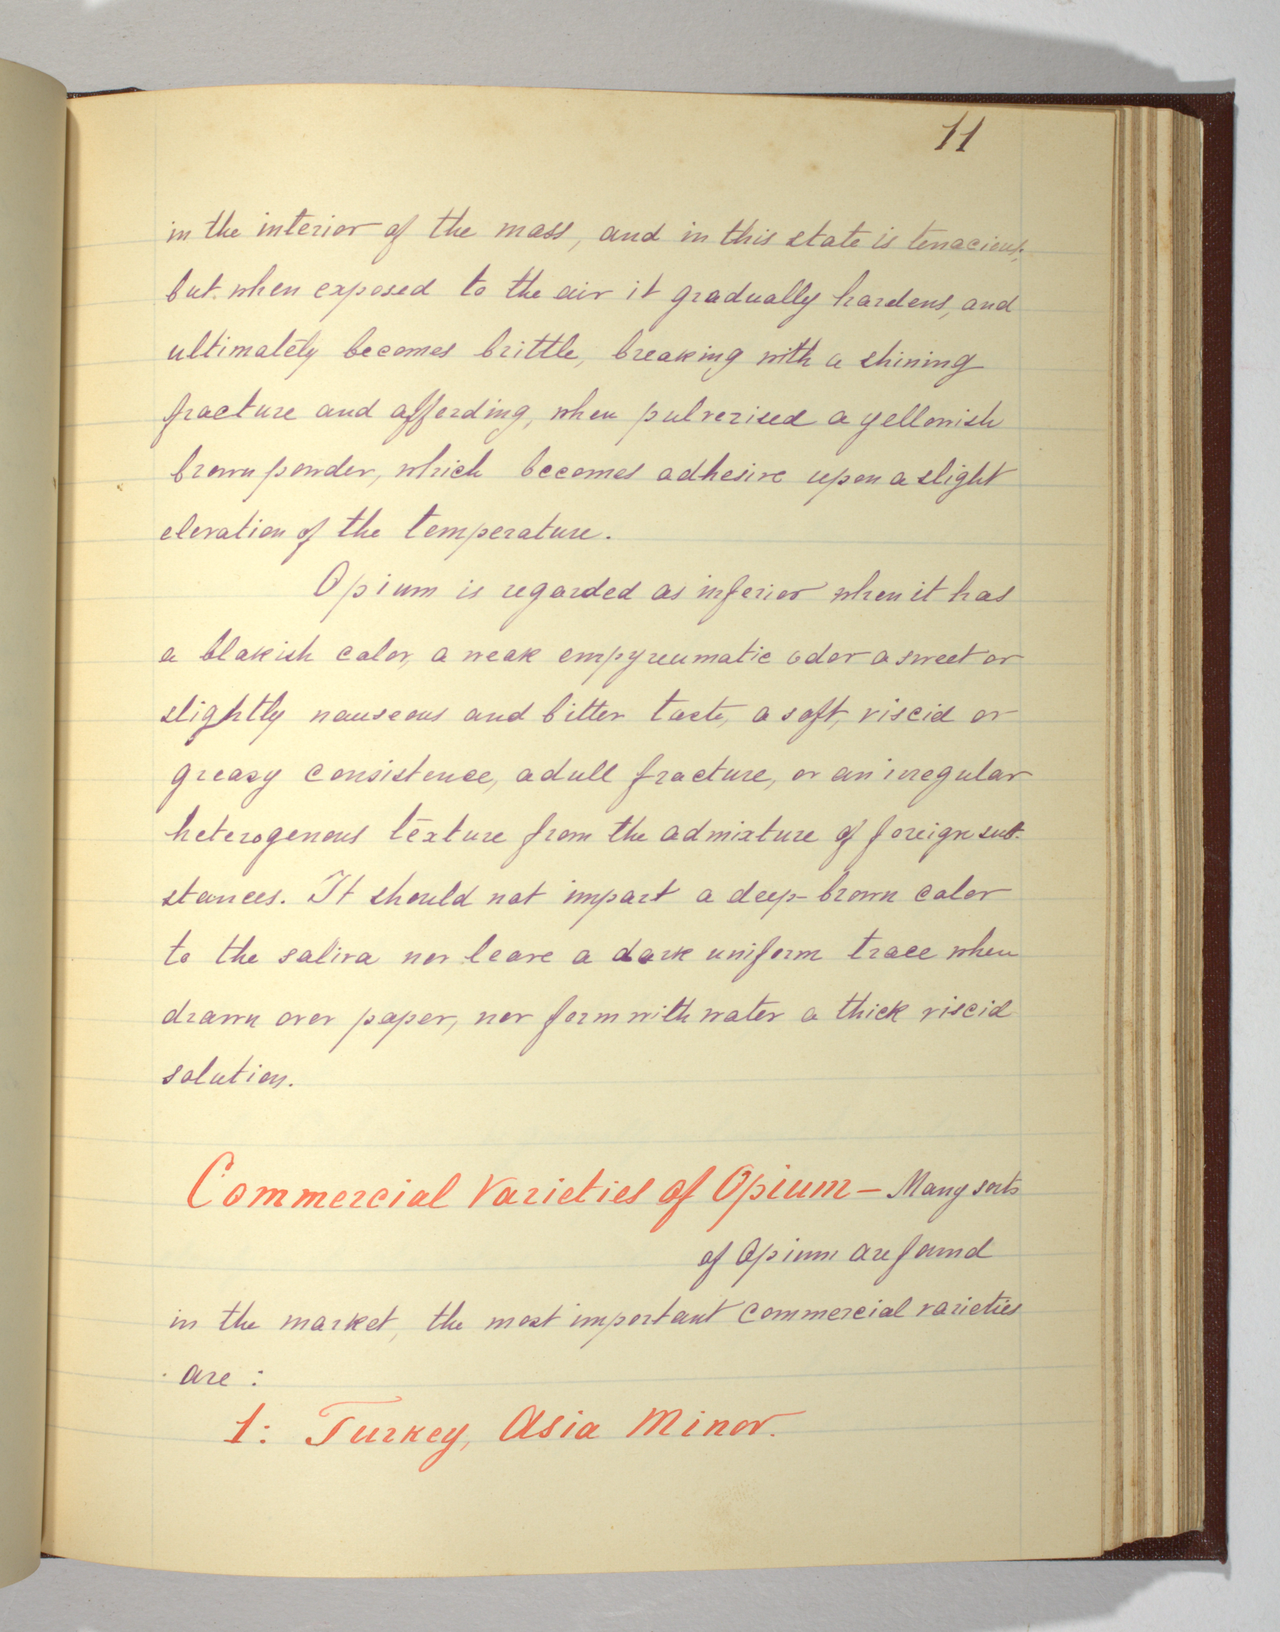 11
in the interior of the mass, and in this state is tenacious,
but when exposed to the air it gradually hardens, and
ultimately becomes brittle, breaking with a shining
fracture and affording, when pulverised a yellowish
brown powder, which becomes adhesive upon a slight
elevation of the temperature.
Opium is regarded as inferior when it has
a blakish color, a weak empyreumatic odor a sweet or
slightly nauseous and bitter taste, a soft, viscid or
greasy consistence, a dull fracture, or an irregular
heterogenous texture from the admixture of foreign sub-
stances. It should not impart a deep-brown color
to the saliva nor leave a dark uniform trace when
drawn over paper, nor form with water a thick viscid
solution.
Commercial Varieties of Opium — Many sorts
of Opium are found
in the market, the most important commercial varieties
are :
1: Turkey, Asia Minor.